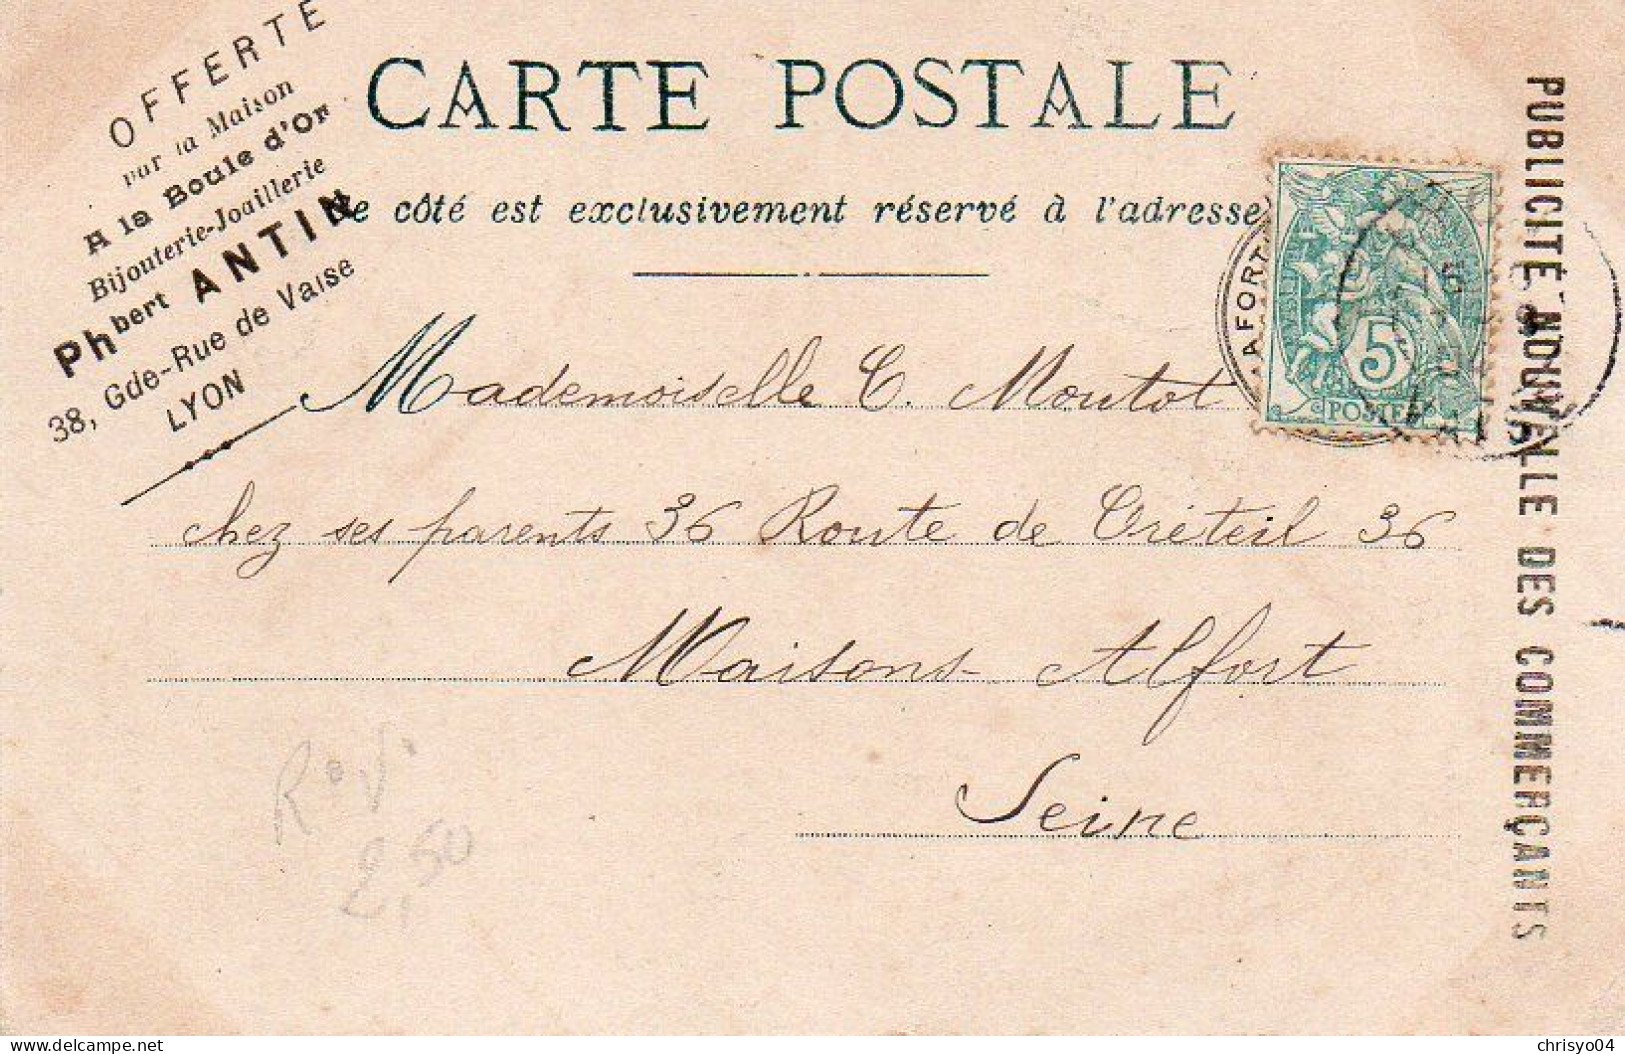 OFFERTE
par la Maison
A la Boule d'Or
Bijouterie-Joaillerie
Phbert ANTIN
38, Gde-Rue de Vaise
LYON
CARTE POSTALE
Ce côté est exclusivement réservé à l'adresse
AFORT
5
POSTES
PUBLICITÉ NOUVELLE DES COMMERÇANTS
Mademoiselle C. Moutot
chez ses parents 36 Route de Créteil 36
Maisons-Alfort
Seine
2,50
delcampe.net
chrisyo04